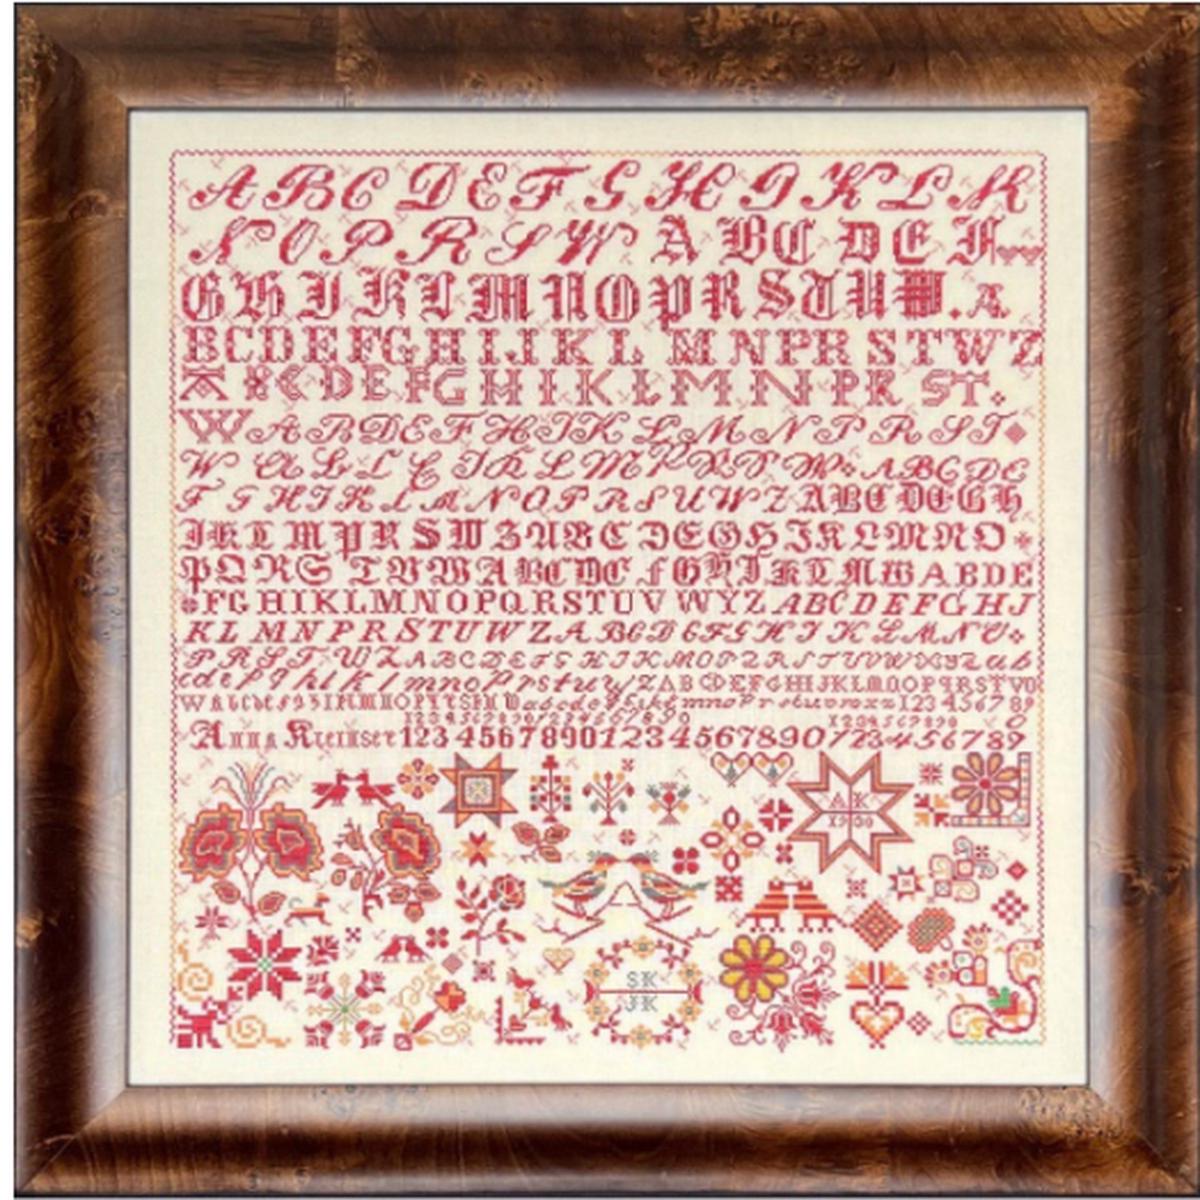 A B C D E F G H I K L M
N O P R S W A B C D E F
G H I K L M N O P R S T U W . A
B C D E F G H I J K L M N P R S T W Z
A B C D E F G H I K L M N P R S T .
W A B D E F H I K L M N P R S T
W
A B C D E
F G H I K L M N O P R S U W Z A B C D E G H
I K L M P R S W Z A B C D E G H I K L M N O
P Q R S T V W A B C D C F G H I K L M W A B D E
F G H I K L M N O P Q R S T U V W Y Z A B C D E F G H J
K L M N P R S T U W Z A B C D E F G H I K L M N O
P R S T W Z A B C D E F G H I K M O P Q R S T U V W X Y Z a b
c d e f g h i k l m n o p r s t u w y Z A B C D E F G H I J K L M N O P Q R S T V O
1 2 3 4 5 6 7 8 9
1 2 3 4 5 6 7 8 9 0 1 2 3 4 5 6 7 8 9 0 1 2 3 4 5 6 7 8 9 0 0
Anna 1 2 3 4 5 6 7 8 9 0 1 2 3 4 5 6 7 8 9 0 1 2 3 4 5 6 7 8 9
A K
S K
J K